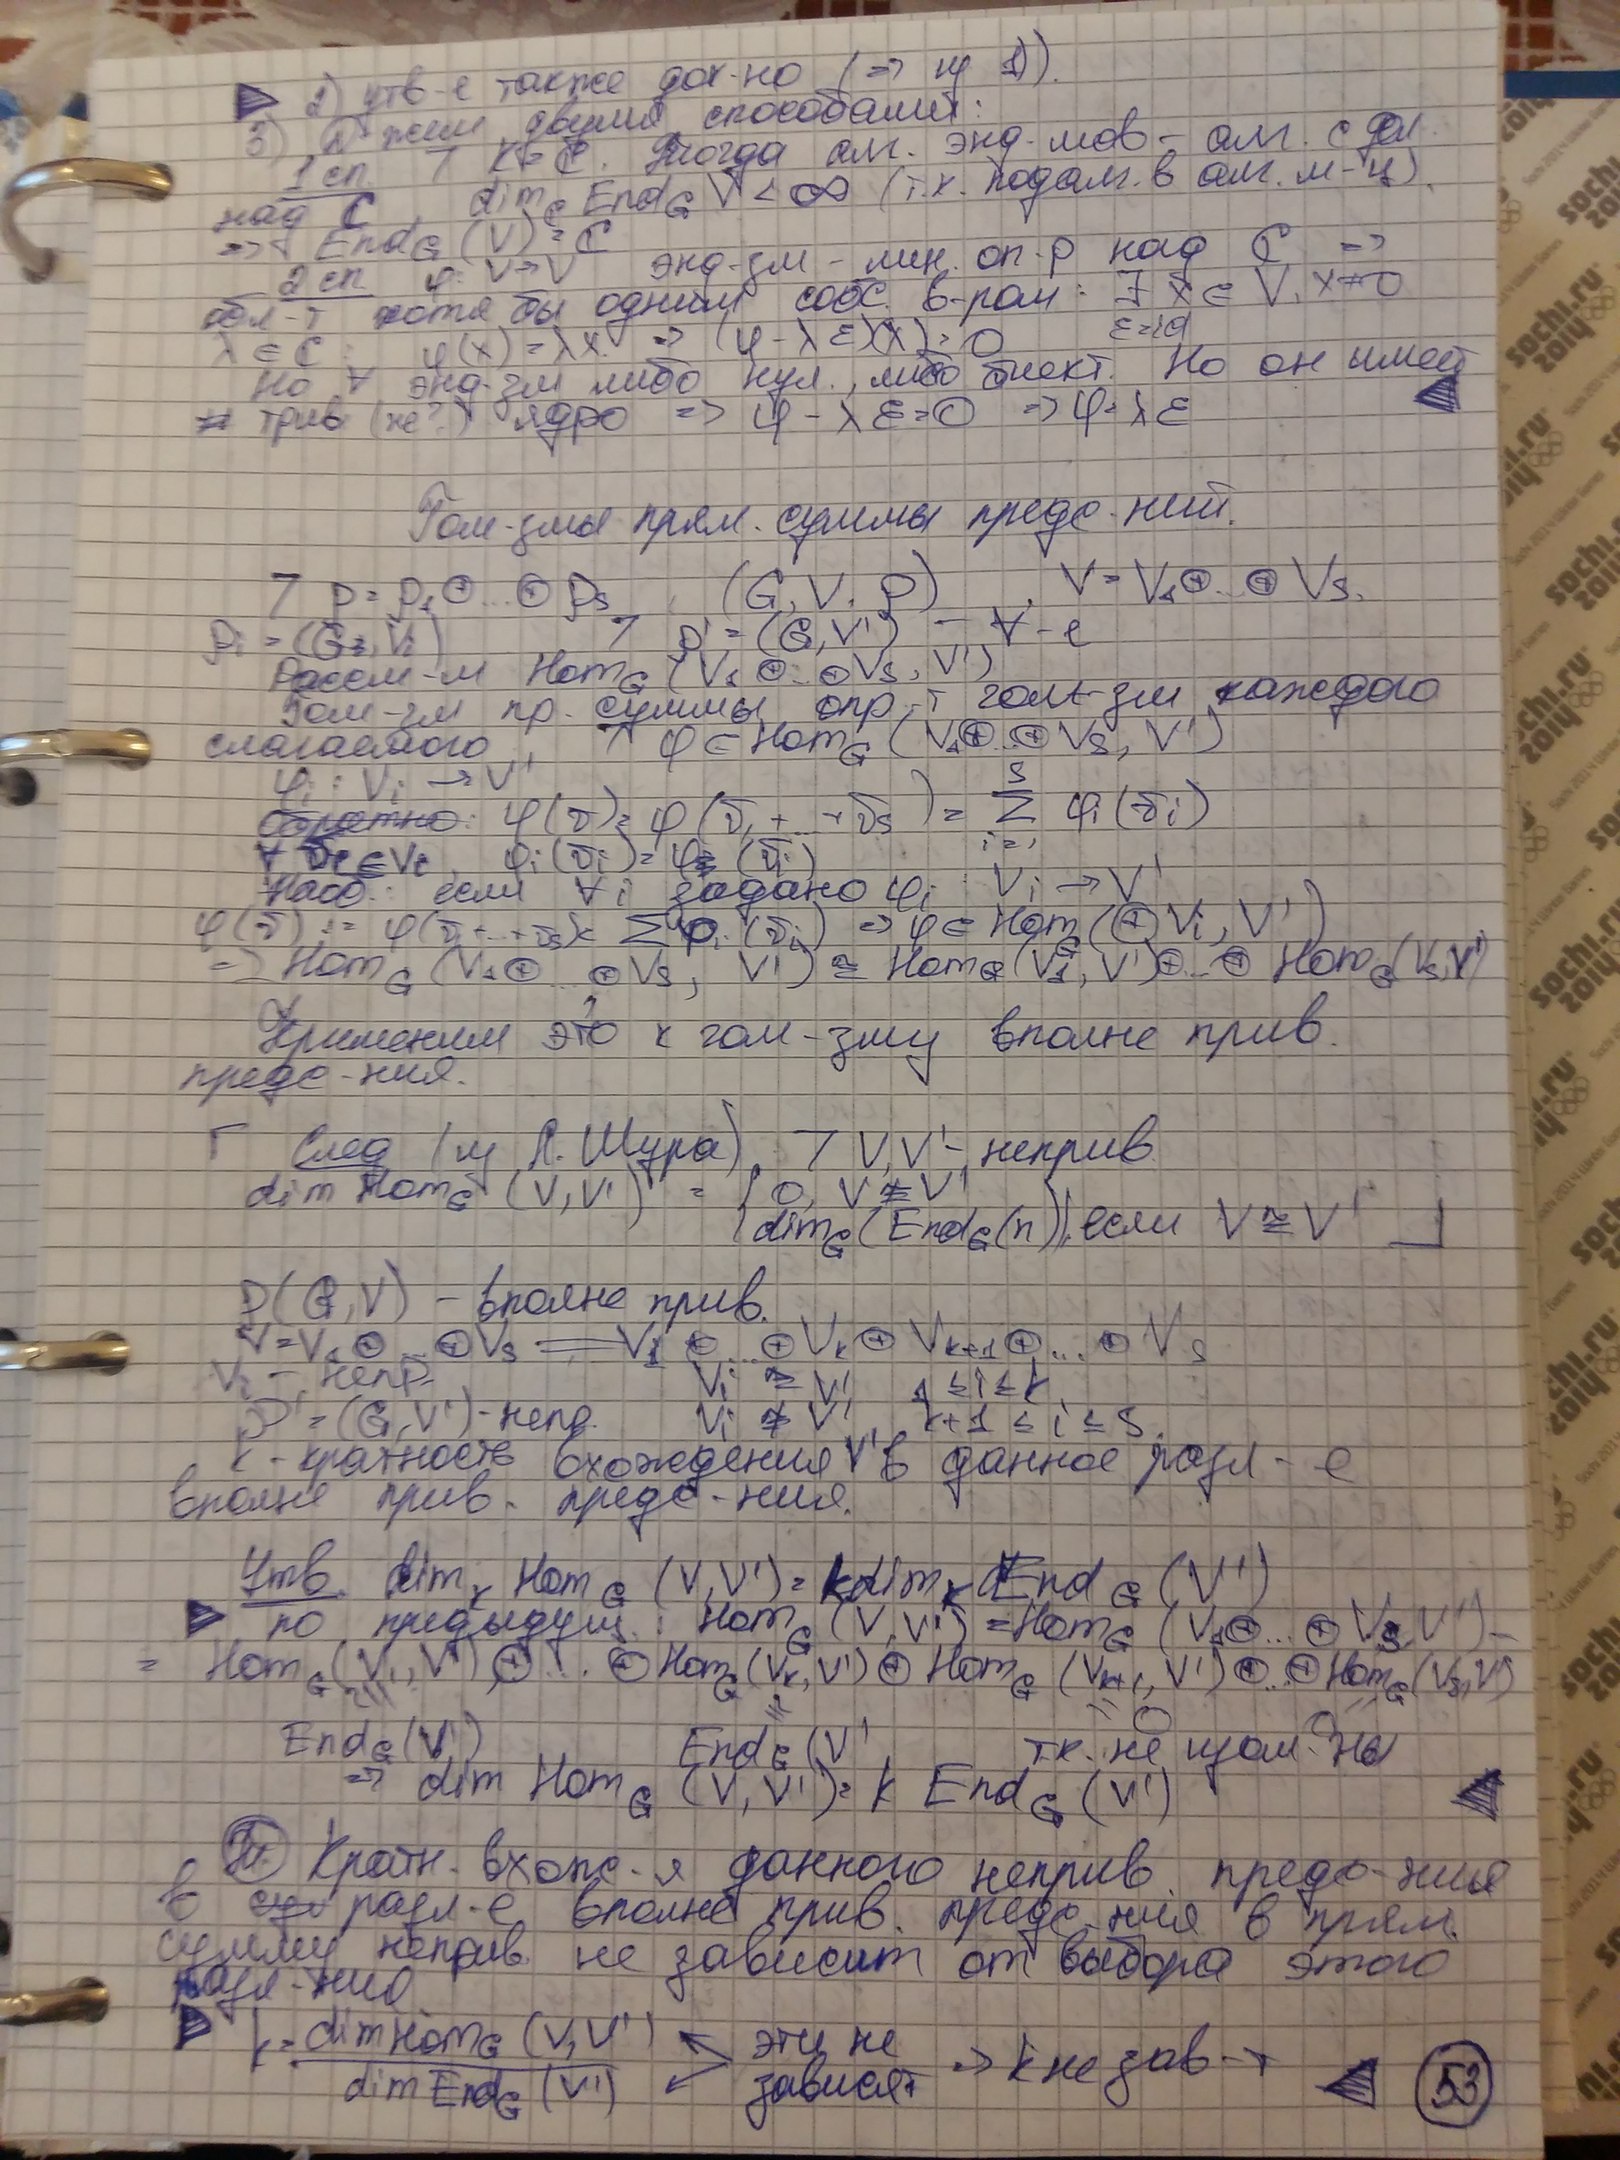 2) утв-е также док-но (=> из 1)).
3) двумя способами:
1 сп. ⅂ K=C. Тогда алг. энд-мов - алг. с дел.
над C, dim_C End_G V < ∞ (т.к. подалг. в алг. м-ц).
=> End_G (V) = C
2 сп. φ: V→V энд-зм - лин. оп-р над C =>
обл-т хотя бы одним собс. в-ром: ∃ x ∈ V, x≠0
λ ∈ C: φ(x) = λx. => (φ - λε)(x) = 0 ε=id
Но ∀ энд-зм либо нул., либо биект. Но он имеет
трив (не?) ядро => φ - λε = 0 => φ = λε
Гом-змы прям. суммы предс-ний.
⅂ ρ = ρ₁ ⊕ ... ⊕ ρs, (G, V, ρ), V = V₁ ⊕ ... ⊕ Vs.
ρi = (G, Vi) ⅂ ρ' = (G, V') - ∀-е
Рассм-м Hom_G (V₁ ⊕ ... ⊕ Vs, V')
Гом-зм пр. суммы опр-т гом-зм каждого
слагаемого, ⅂ φ ∈ Hom_G (V₁ ⊕ ... ⊕ Vs, V')
φi : Vi → V'
обратно: φ(v) = φ(v₁ + ... + vs) = Σ_{i=1}^{s} φi(vi)
∀ vi ∈ Vi φi(vi) = φ(vi)
Наоб.: если ∀ i задано φi : Vi → V'
φ(v) := φ(v₁+...+vs) = Σ φi (vi) => φ ∈ Hom_G (⊕ Vi, V')
=> Hom_G (V₁ ⊕ ... ⊕ Vs, V') ≅ Hom_G (V₁, V') ⊕ ... ⊕ Hom_G (Vs, V')
Применим это к гом-зму вполне прив.
предс-ния.
Г След (из Л. Шура). ⅂ V, V' - неприв.
dim Hom_G (V, V') = { 0, V ≇ V'
{ dim_G (End_G(n)), если V ≅ V' ⅃
ρ(G, V) - вполне прив.
V = V₁ ⊕ ... ⊕ Vs = V₁ ⊕ ... ⊕ Vk ⊕ Vk+1 ⊕ ... ⊕ Vs
Vi - непр. Vi ≅ V', 1 ≤ i ≤ k
ρ' = (G, V') - непр. Vi ≇ V' k+1 ≤ i ≤ s
k - кратность вхождения V' в данное разл-е
вполне прив. предс-ния.
Утв. dim_K Hom_G (V, V') = k dim_K End_G (V')
по предыдущ.: Hom_G (V, V') = Hom_G (V₁ ⊕ ... ⊕ Vs, V') =
= Hom_G (V₁, V') ⊕ ... ⊕ Hom_G (Vk, V') ⊕ Hom_G (Vk+1, V') ⊕ ... ⊕ Hom_G (Vs, V')
End_G (V') End_G (V') 0 0 т.к. не изом-ны
=> dim Hom_G (V, V') = k End_G (V')
Т. Кратн. вхожд-я данного неприв. предс-ния
в разл-е вполне прив. предс-ния в прям.
сумму неприв. не зависит от выбора этого
разл-ния
k = dim Hom_G (V, V') / dim End_G (V') эти не зависят => k не зав-т
53
sochi.ru
2014
Sochi 2014 Olympic Winter Games